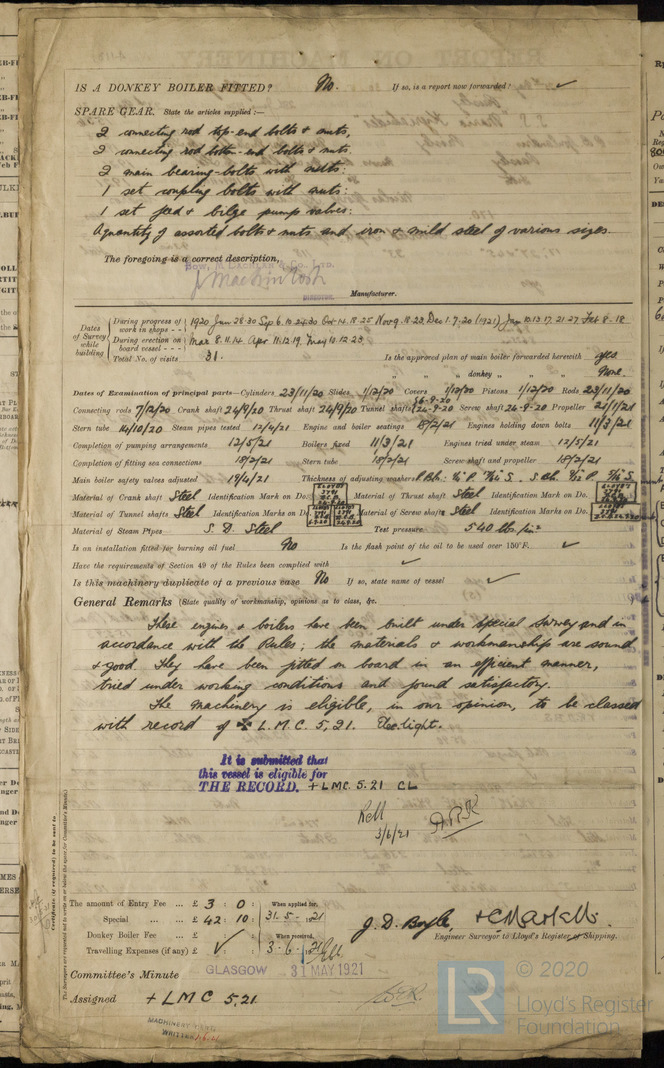 IS A DONKEY BOILER FITTED? No. If so, is a report now forwarded? ✓
SPARE GEAR. State the articles supplied :—
2 connecting rod top-end bolts & nuts,
2 connecting rod bottom-end bolts & nuts.
2 main bearing-bolts with nuts:
1 set coupling bolts with nuts:
1 set feed & bilge pump valves:
A quantity of assorted bolts & nuts and iron & mild steel of various sizes.
The foregoing is a correct description,
BOW, McLACHLAN & CO. LTD.
J Mackintosh
DIRECTOR.
Manufacturer.
Dates of Survey while building
During progress of work in shops - - 1920 Jun 28.30 Sep 6.10.24.30 Oct 14.18.25 Nov 9.18.23 Dec 1.7.20 (1921) Jan 10.13.17.21.27 Feb 8.18
During erection on board vessel - - - Mar 8.11.14 Apr 11.12.19. May 10.12.23.
Total No. of visits 31.
Is the approved plan of main boiler forwarded herewith yes
" " " donkey " " " None
Dates of Examination of principal parts—Cylinders 23/11/20 Slides 1/12/20 Covers 1/12/20 Pistons 1/12/20 Rods 23/11/20
Connecting rods 7/12/20 Crank shaft 24/9/20 Thrust shaft 24/9/20 Tunnel shafts 24-9-20 Screw shaft 24-9-20 Propeller
Stern tube 14/10/20 Steam pipes tested 12/4/21 Engine and boiler seatings 8/2/21 Engines holding down bolts 11/3/21
Completion of pumping arrangements 12/5/21 Boilers fixed 11/3/21 Engines tried under steam 12/5/21
Completion of fitting sea connections 18/2/21 Stern tube 18/2/21 Screw shaft and propeller 18/2/21
Main boiler safety valves adjusted 19/4/21 Thickness of adjusting washers
Material of Crank shaft Steel Identification Mark on Do. Material of Thrust shaft Steel Identification Mark on Do.
Material of Tunnel shafts Steel Identification Marks on Do. Material of Screw shafts Steel Identification Marks on Do.
Material of Steam Pipes S. D. Steel Test pressure 540 lbs./in²
Is an installation fitted for burning oil fuel No Is the flash point of the oil to be used over 150°F. ✓
Have the requirements of Section 49 of the Rules been complied with ✓
Is this machinery duplicate of a previous case No If so, state name of vessel ✓
General Remarks (State quality of workmanship, opinions as to class, &c.
These engines & boilers have been built under special survey and in
accordance with the Rules; the materials & workmanship are sound
& good. They have been fitted on board in an efficient manner,
tried under working conditions and found satisfactory.
The machinery is eligible, in our opinion, to be classed
with record of + L.M.C. 5,21. Elec. light.
It is submitted that
this vessel is eligible for
THE RECORD. + LMC 5.21 CL
3/6/21
Certificate (if required) to be sent to
The Surveyors are requested not to write on or below the space for Committee's Minute.
The amount of Entry Fee ... £ 3 : 0 : When applied for,
Special ... £ 42 : 10 : 31.5.1921
Donkey Boiler Fee ... £ : : When received,
Travelling Expenses (if any) £ ✓ : 3-6-1921
J. D. Boyle,
Engineer Surveyor to Lloyd's Register of Shipping.
Committee's Minute GLASGOW 31 MAY 1921
Assigned + LMC 5,21
MACHINERY CERT.
WRITTEN
LR © 2020
Lloyd's Register
Foundation